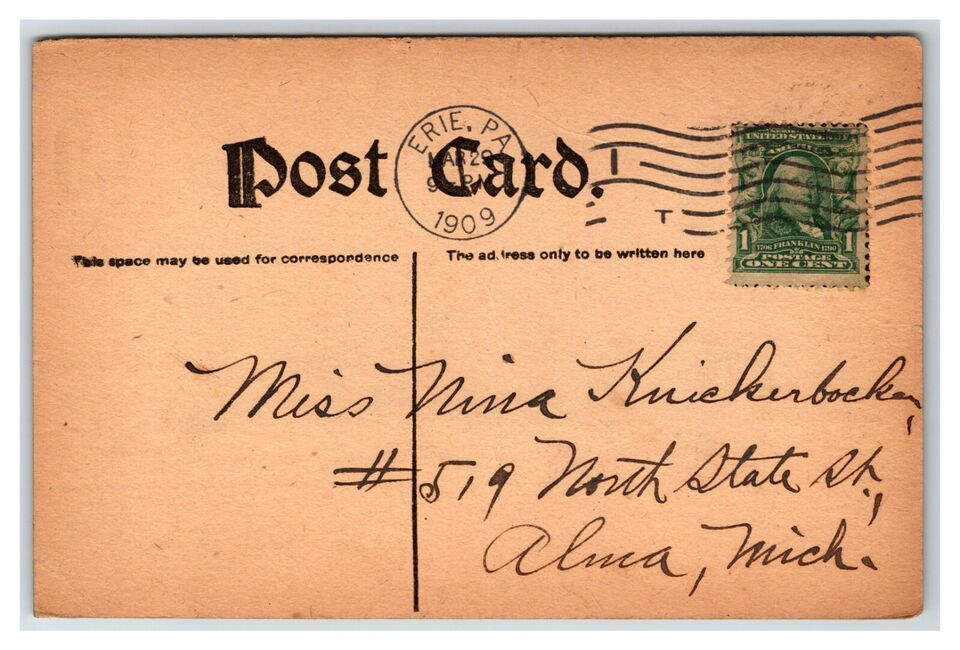 Post Card.
ERIE, PA
MAR 29
1909
UNITED STATES
1 1706 FRANKLIN 1790 1
POSTAGE
ONE CENT
This space may be used for correspondence
The address only to be written here
Miss Nina Knickerbocker,
#519 North State St.,
Alma, Mich.